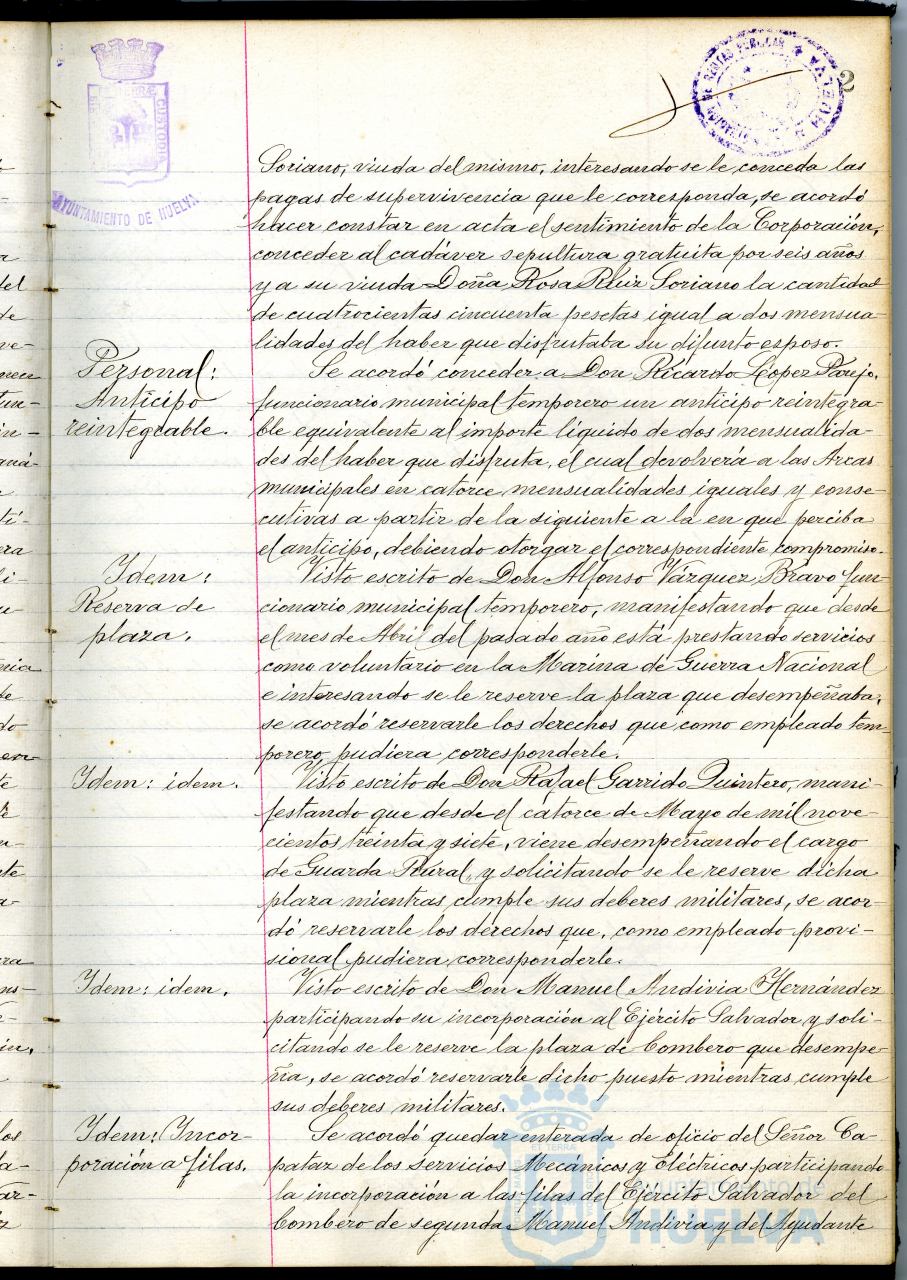 2
AYUNTAMIENTO DE HUELVA
CUSTODIA
HUELVA
Soriano, viuda del mismo, interesando se le conceda las
pagas de supervivencia que le corresponda, se acordó
hacer constar en acta el sentimiento de la Corporación,
conceder al cadáver sepultura gratuita por seis años
y a su viuda Doña Rosa Ruiz Soriano la cantidad
de cuatrocientas cincuenta pesetas igual a dos mensua-
lidades del haber que disfrutaba su difunto esposo.
Personal:
Anticipo
reintegrable.
Se acordó conceder a Don Ricardo López Parejo,
funcionario municipal temporero un anticipo reintegra-
ble equivalente al importe líquido de dos mensualida-
des del haber que disfruta, él cual devolvería a las Arcas
municipales en catorce mensualidades iguales y conse-
cutivas a partir de la siguiente a la en que perciba
el anticipo, debiendo otorgar el correspondiente compromiso.
Idem:
Reserva de
plaza.
Visto escrito de Don Alfonso Vázquez Bravo fun-
cionario municipal temporero, manifestando que desde
el mes de Abril del pasado año está prestando servicios
como voluntario en la Marina de Guerra Nacional
e interesando se le reserve la plaza que desempeñaba,
se acordó reservarle los derechos que como empleado tem-
porero, pudiera corresponderle.
Idem: idem.
Visto escrito de Don Rafael Garrido Quintero, mani-
festando que desde el catorce de Mayo de mil nove-
cientos treinta y siete, viene desempeñando el cargo
de Guarda Rural, y solicitando se le reserve dicha
plaza mientras cumple sus deberes militares, se acor-
dó reservarle los derechos que, como empleado provi-
sional pudiera corresponderle.
Idem: idem.
Visto escrito de Don Manuel Andivia Hernández
participando su incorporación al Ejército Salvador y soli-
citando se le reserve la plaza de Bombero que desempe-
ña, se acordó reservarle dicho puesto mientras cumple
sus deberes militares.
Idem: Incor-
poración a filas.
Se acordó quedar enterada de oficio del Señor Ca-
pataz de los servicios Mecánicos y Eléctricos participando
la incorporación a las filas del Ejército Salvador del
Bombero de segunda Manuel Andivia y del Ayudante
Ayuntamiento de
HUELVA